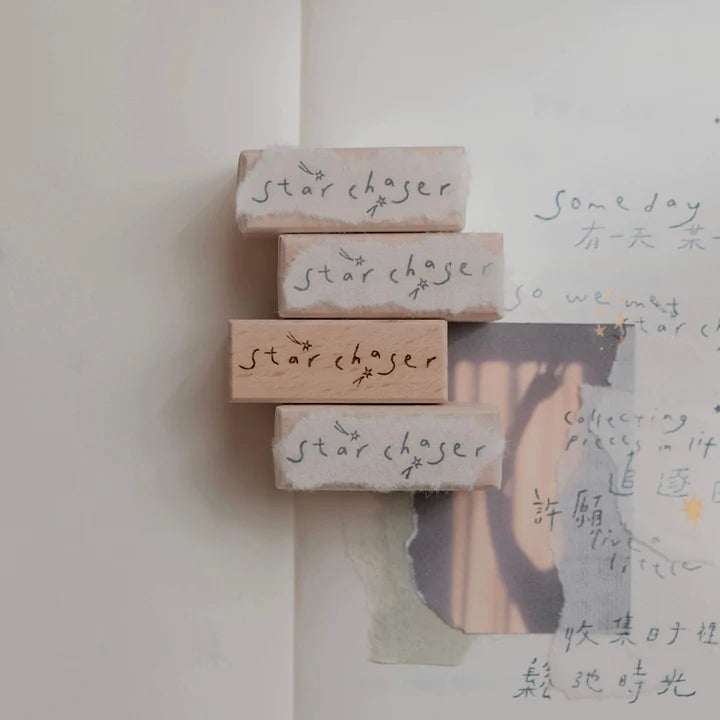 star chaser
star chaser
star chaser
star chaser
someday
有一天
so we met
star ch
collecting
pieces in lif
追逐
許願
live a
little
收集日子裡
鬆弛時光